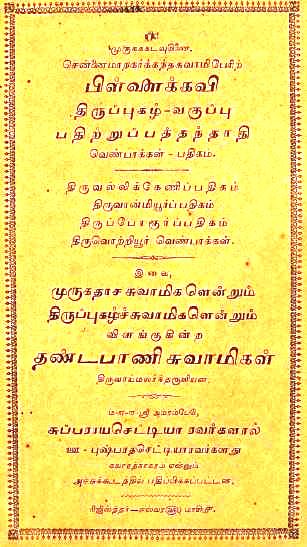 முருககடவுடுணை.
சென்னைமாநகர்க்கந்தசுவாமிபேரிற்
பிள்ளைக்கவி
திருப்புகழ்-வகுப்பு
பதிற்றுப்பத்தந்தாதி
வெண்பாக்கள் - பதிகம்.
திருவல்லிக்கேணிப்பதிகம்
திருவான்மியூர்ப்பதிகம்
திருப்போரூர்ப்பதிகம்
திருவொற்றியூர் வெண்பாக்கள்.
இவை,
முருகதாசசுவாமிகளென்றும்
திருப்புகழ்ச்சுவாமிகளென்றும்
விளங்குகின்ற
தண்டபாணிசுவாமிகள்
திருவாய்மலர்ந்தருளியன.
சுப்பராயசெட்டியாரவர்களால்
புஷ்பரதசெட்டியாரவர்களது
என்னும்
அச்சுக்கூடத்தில் பதிப்பிக்கப்பட்டன.